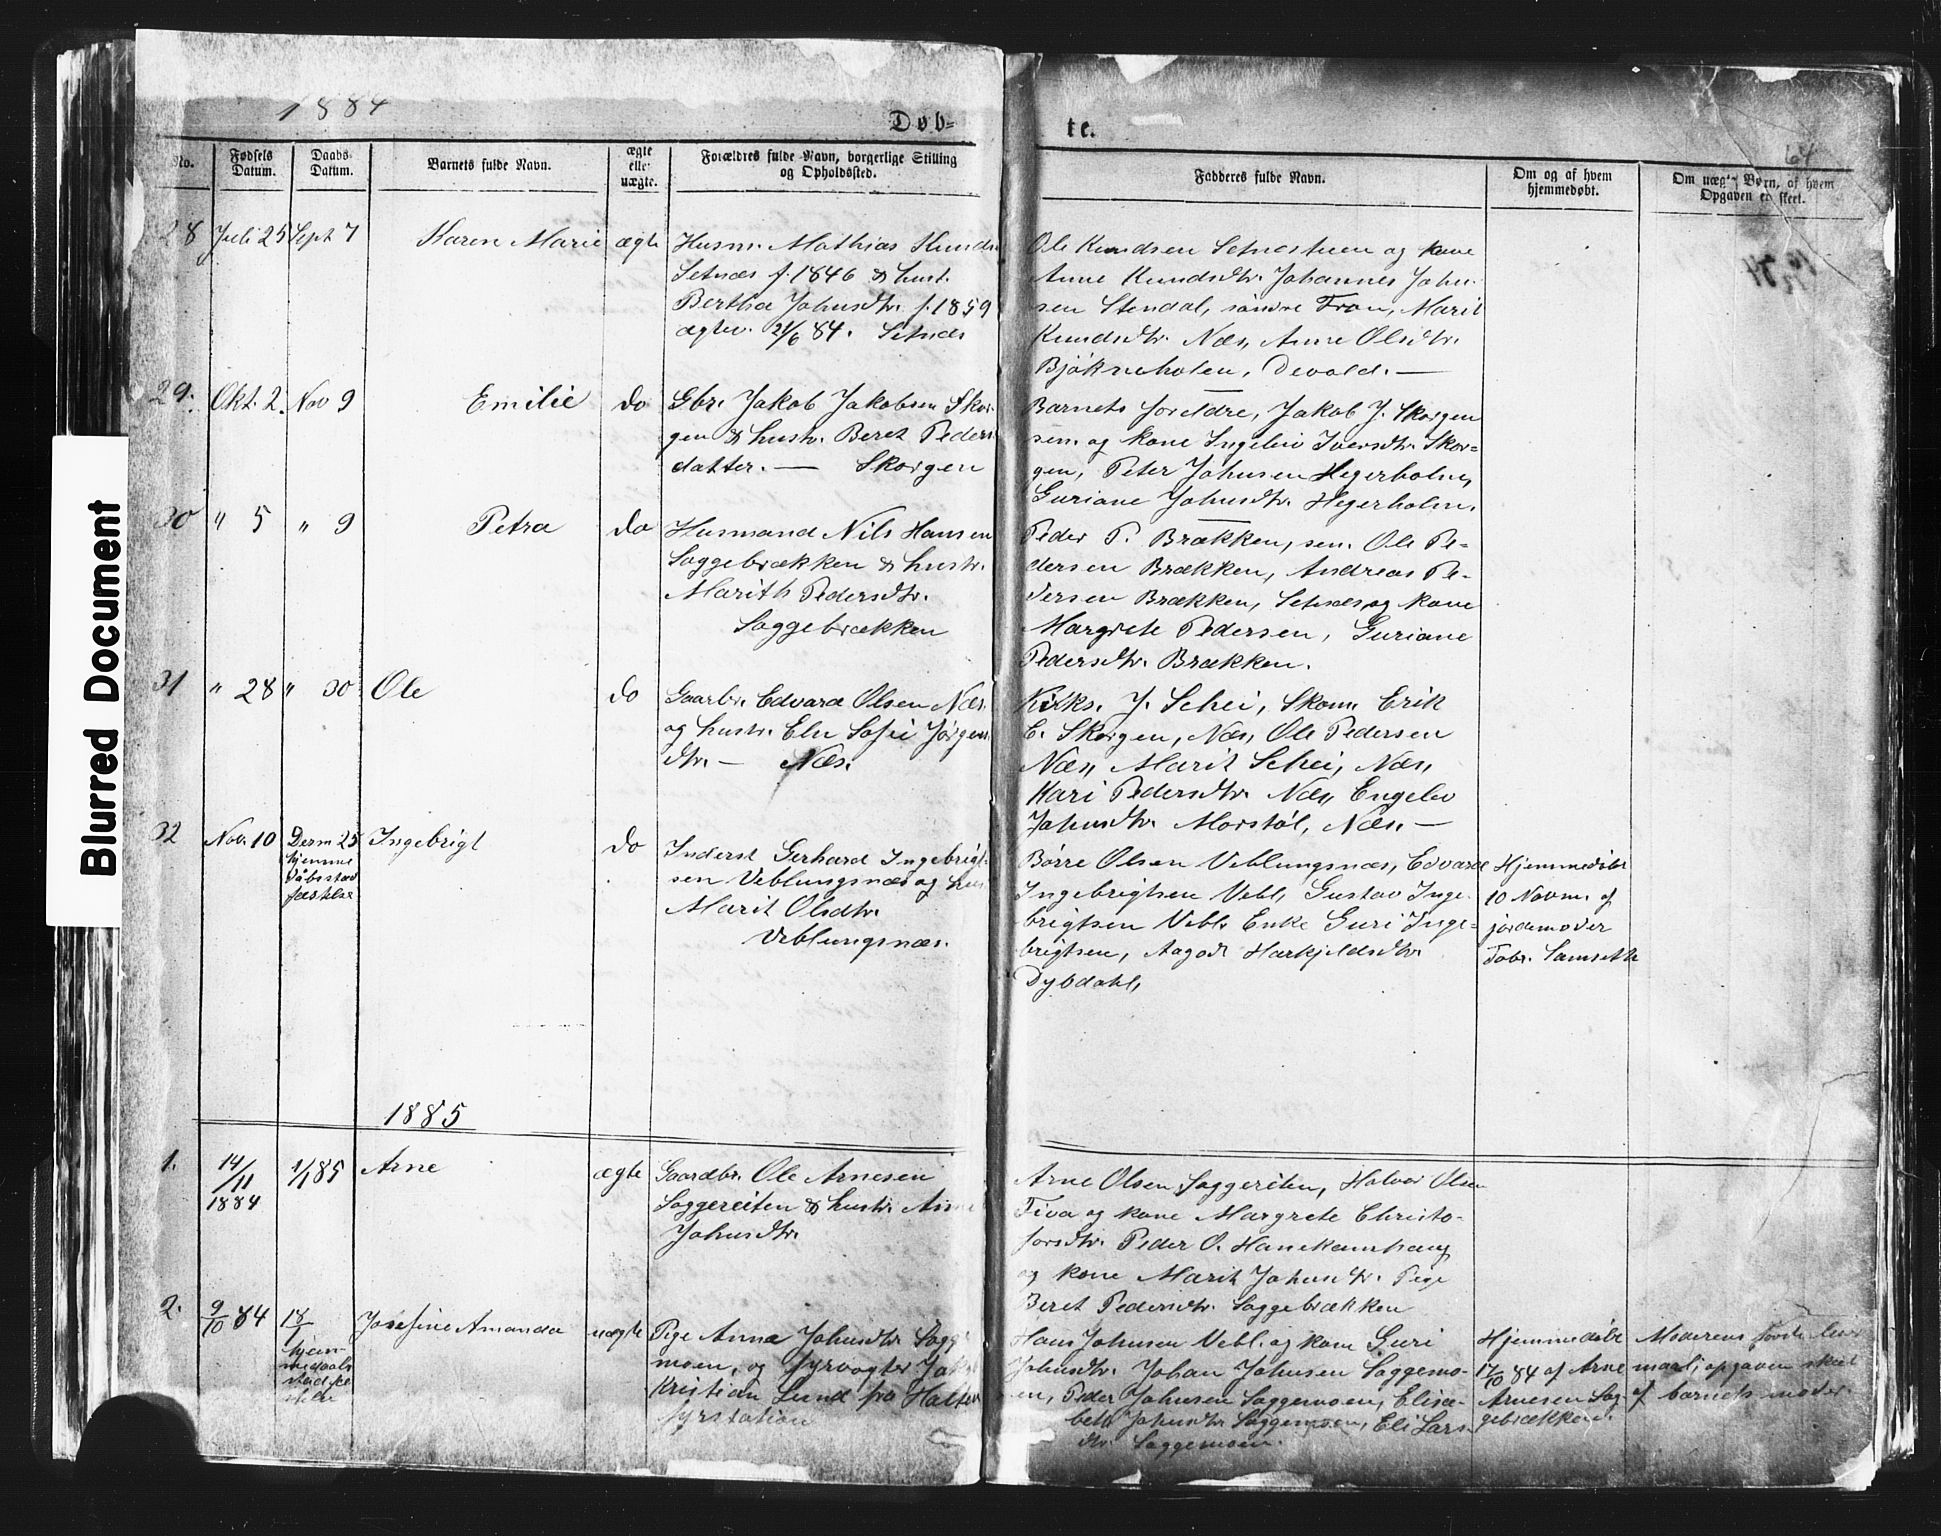 Blurred Document
1884
Døb=
te.
64
No.
Fødsels Datum.
Daabs Datum.
Barnets fulde Navn.
ægte eller uægte.
Forældres fulde Navn, borgerlige Stilling og Opholdssted.
Fadderes fulde Navn.
Om og af hvem hjemmedøbt.
Om uægte Børn, af hvem Opgaven er skeet.
28 Juli 25 Sept 7 Karen Marie ægte
Husm. Mathias Knuds
Setnæs f. 1846 & hust.
Bertha Johnsdtr. f. 1859
ægtev. 2/6 84. Setnæs
Ole Knudsen Setnæsteen og kone
Anne Knudsdtr. Johannes John-
sen Stendal, söndre Fron, Marit
Knudsdtr. Næs, Anne Olsdtr.
Devold. —
29. Okt. 2. Nov 9 Emilie do
Gbr. Jakob Jakobsen Skor-
gen & hustr. Beret Peders
datter. — Skorgen
Barnets foreldre, Jakob J. Skorgen
sen. og kone Ingebr Iversdtr. Skor=
gen, Peter Johnsen Hegerholm,
Guriane Johnsdtr. Hegerholm.
30 " 5 " 9 Petra do
Husmand Nils Hansen
Soggebrækken & hustr.
Marith Pedersdtr.
Soggebrækken
Peder P. Brækken, sen. Ole Pe-
dersen Brækken, Andreas Pe-
dersen Brækken, Setnæs og kone
Margrete Pedersen, Guriane
Pedersdtr. Brækken.
31 " 28 " 30 Ole do
Gaarbr. Edvard Olsen Næs.
og hustr. Eln Sofie Jörgen
dtr. — Næs.
Kirks. J. Schei, Skom. Erik
E. Skorgen, Næs, Ole Pedersen
Næs, Marit Schei, Næs,
Kari Pedersdtr. Næs, Engebr
Johnsdtr. Morstöl, Næs. —
32 Nov. 10 Decm 25 Ingebrigt do
hjemme
dåbsstad
fæstelse
Inderst Gerhard Ingebrigt-
sen Veblungsnæs og hus
Marit Olsdtr.
Veblungsnæs.
Börre Olsen Veblungsnæs, Edvard
Ingebrigtsen Vebl, Gustav Inge-
brigtsen Vebl. Enke Guri Inge=
brigtsen, Aagot Harkjeldsdtr.
Dybdahl,
Hjemmedöbt
10 Novm. af
jordemoder
Samseth
1885
1. 14/11 1884 1/1 85 Arne ægte
Gaardbr. Ole Arnesen
Soggereiten & hustr. Anne
Johnsdtr.
Arne Olsen Soggereiten, Halvor Olsen
Fiva og kone Margrete Christo-
forsdtr. Peder O. Hanekamhaug
og kone Marit Johnsdtr. Pige
Beret Pedersdtr. Soggebrækken
2. 9/10 84 18/1 Josefine Amanda uægte
hjem-
medaabs
stadfæ
stelse
Pige Anna Johnsdtr. Sogge
moen, og fyrvogter Jakob
Kristian Lund fra Halten
fyrstation
Hans Johnsen Vebl. og kone Guri
Johnsdtr. Johan Johnsen Soggemo-
en, Peder Johnsen Soggemoen, Elisa-
beth Johnsdtr Soggemoen, Eli Lars
dtr. Soggemoen.
Hjemmedöbt
17/10 84 af Arne
Arnesen Sog-
gebrækken.
Moderens förste leier
maal; opgaven skeet
af barnets moder